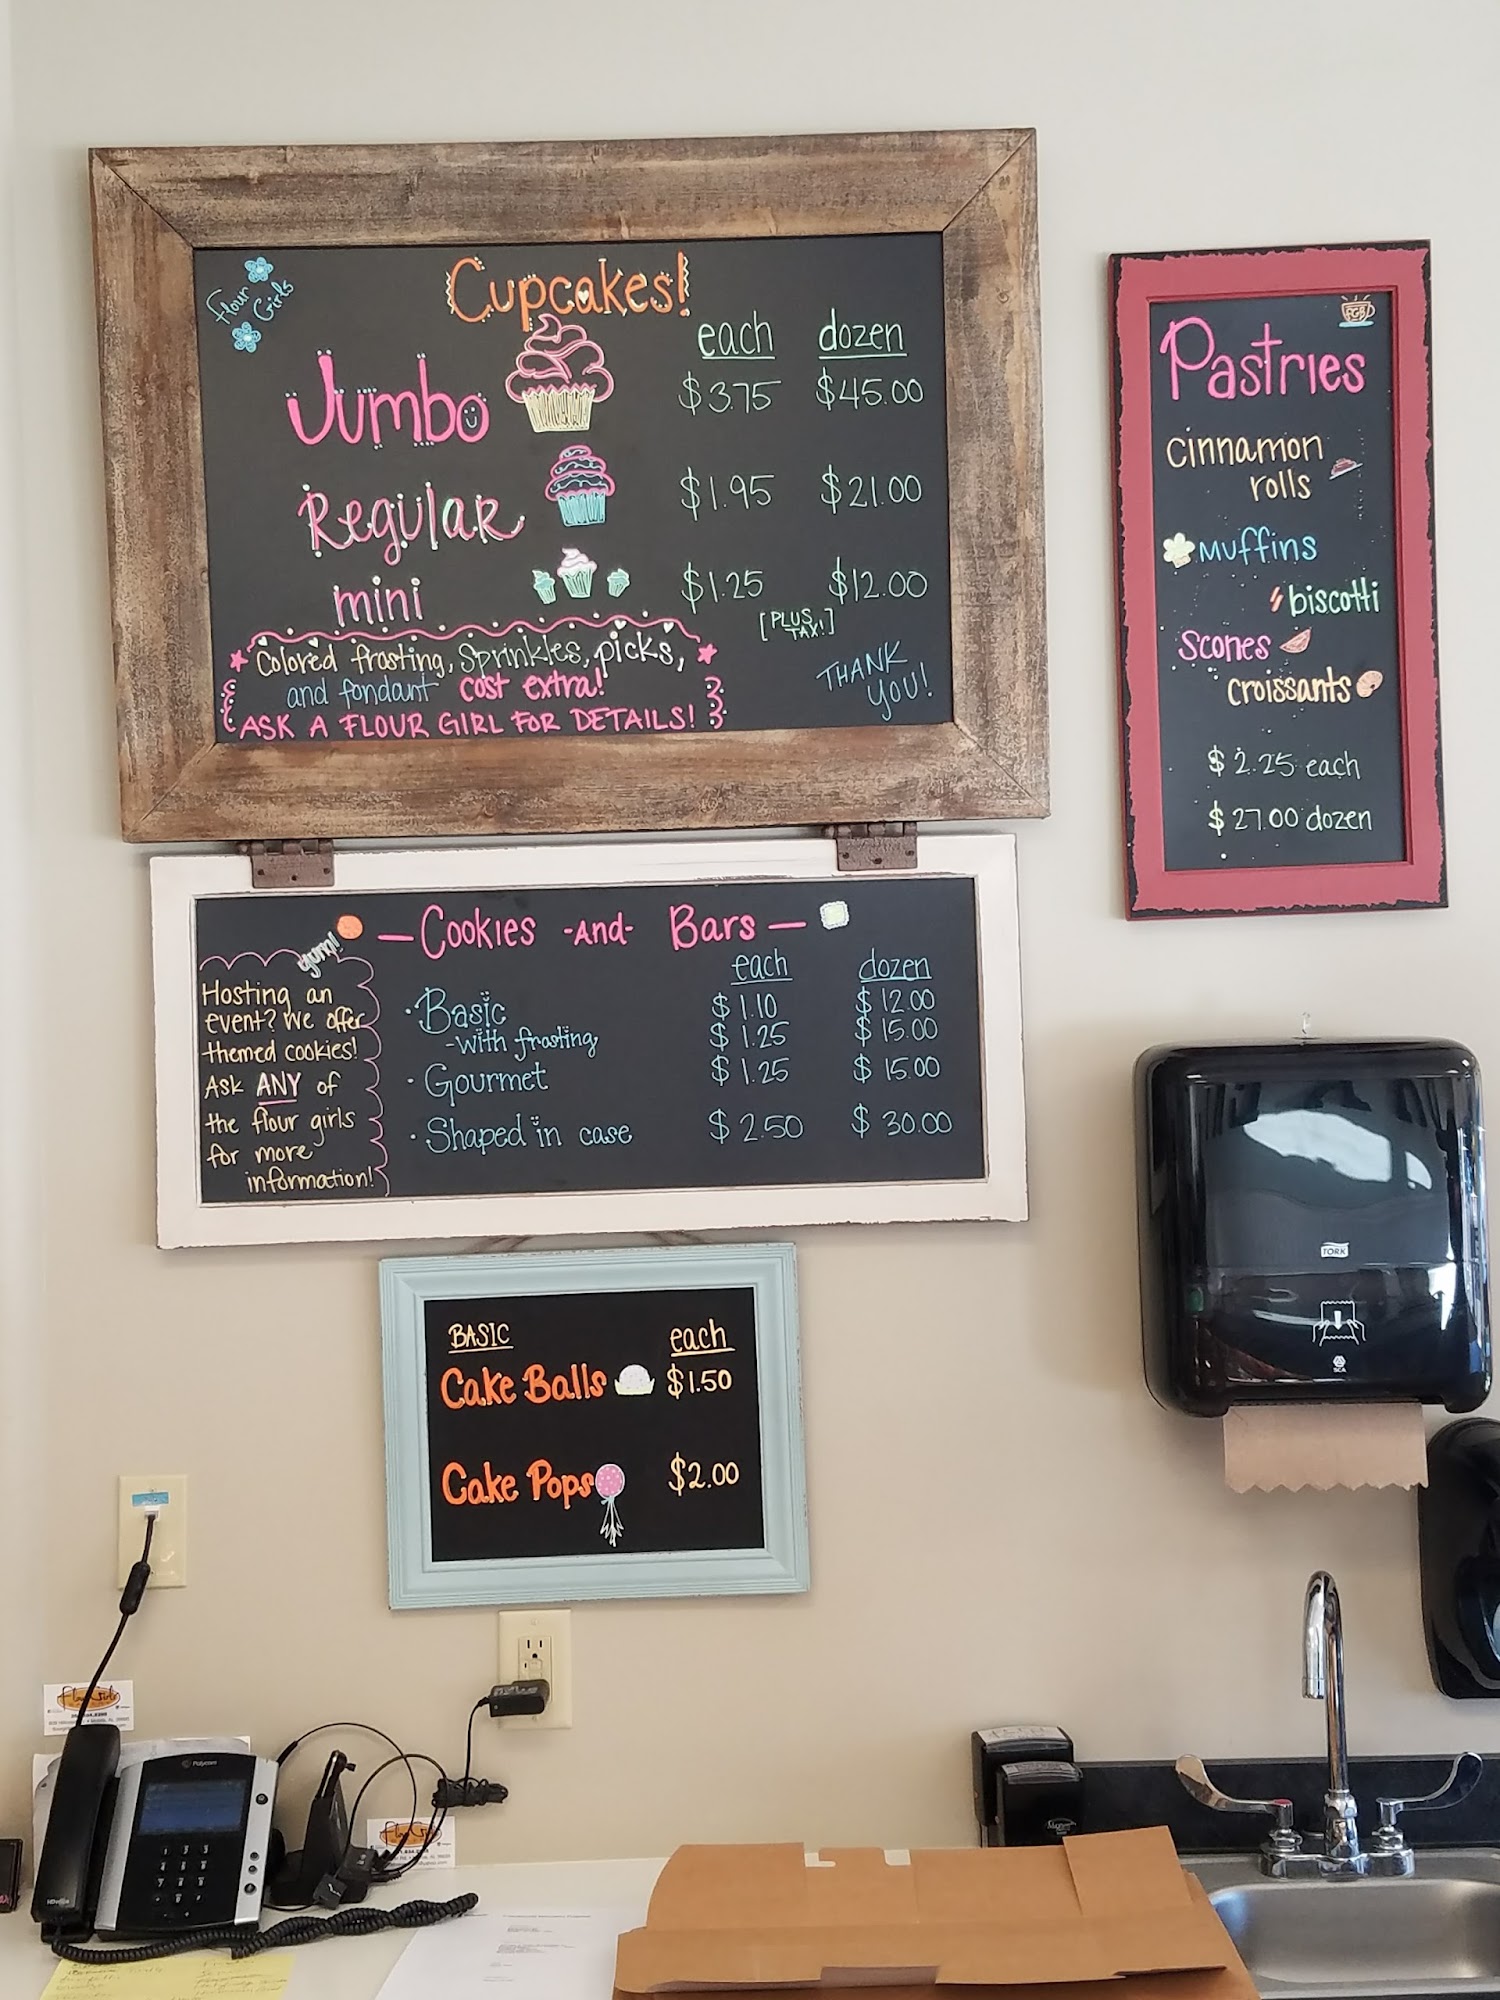 Flour
Girls
Cupcakes!
each dozen
Jumbo $3.75 $45.00
Regular $1.95 $21.00
mini $1.25 $12.00
[PLUS TAX!]
Colored frosting, Sprinkles, picks,
and fondant cost extra!
ASK A FLOUR GIRL FOR DETAILS!
THANK
YOU!
Pastries
cinnamon
rolls
Muffins
biscotti
Scones
croissants
$2.25 each
$27.00 dozen
- Cookies -And- Bars -
each dozen
· Basic $1.10 $12.00
- with frosting $1.25 $15.00
· Gourmet $1.25 $15.00
· Shaped in case $2.50 $30.00
yum!
Hosting an
event? We offer
themed cookies!
Ask ANY of
the flour girls
for more
information!
BASIC each
Cake Balls $1.50
Cake Pops $2.00
TORK
SCA
Polycom